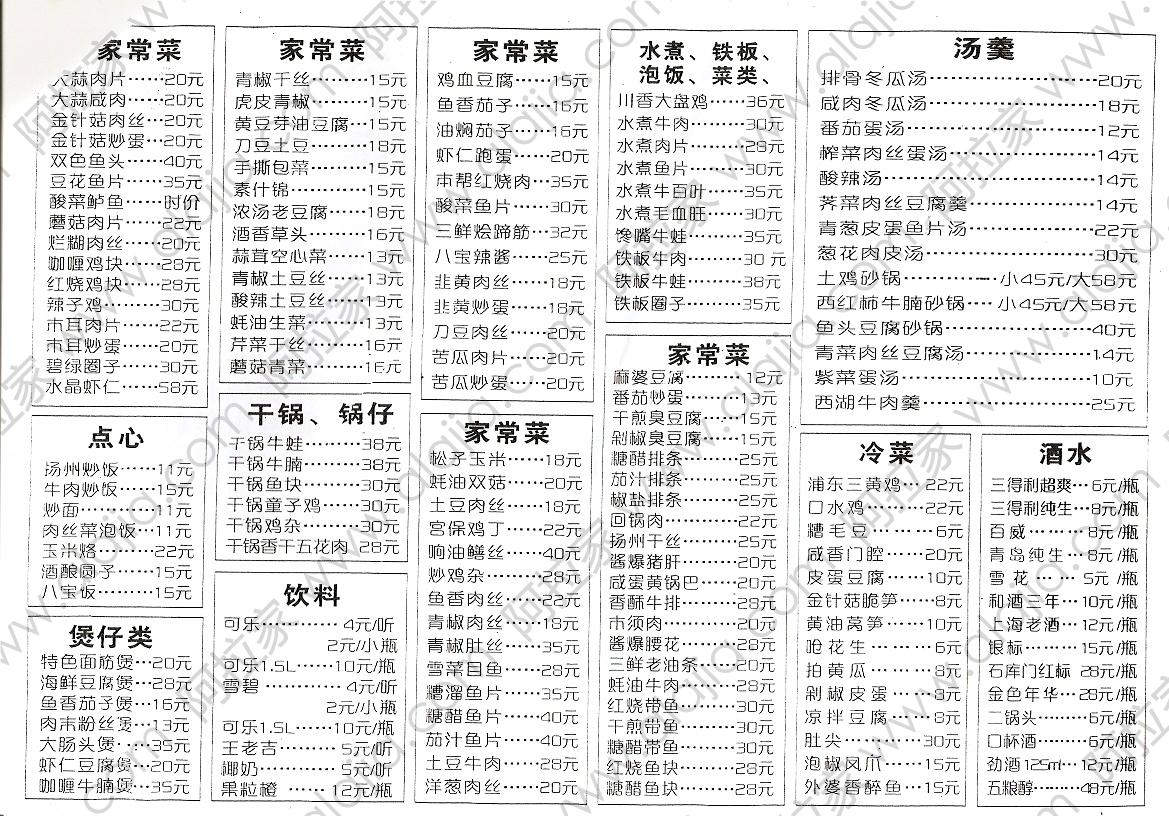 家常菜
大蒜肉片……20元
大蒜咸肉……20元
金针菇肉丝…20元
金针菇炒蛋…20元
双色鱼头……40元
豆花鱼片……35元
酸菜鲈鱼……时价
蘑菇肉片……22元
烂糊肉丝……20元
咖喱鸡块……28元
红烧鸡块……28元
辣子鸡………30元
木耳肉片……22元
木耳炒蛋……20元
碧绿圈子……30元
水晶虾仁……58元
点心
扬州炒饭……11元
牛肉炒饭……15元
炒面…………11元
肉丝菜泡饭…11元
玉米烙………22元
酒酿圆子……15元
八宝饭………15元
煲仔类
特色面筋煲…20元
海鲜豆腐煲…28元
鱼香茄子煲…16元
肉末粉丝煲…13元
大肠头煲……35元
虾仁豆腐煲…20元
咖喱牛腩煲…35元
家常菜
青椒干丝……15元
虎皮青椒……15元
黄豆芽油豆腐…15元
刀豆土豆……18元
手撕包菜……15元
素什锦………15元
浓汤老豆腐…18元
酒香草头……16元
蒜茸空心菜…13元
青椒土豆丝…13元
酸辣土豆丝…13元
蚝油生菜……13元
芹菜干丝……16元
蘑菇青菜……16元
干锅、锅仔
干锅牛蛙………38元
干锅牛腩………38元
干锅鱼块………30元
干锅童子鸡……30元
干锅鸡杂………30元
干锅香干五花肉 28元
饮料
可乐…………4元/听
2元/小瓶
可乐1.5L……10元/瓶
雪碧…………4元/听
2元/小瓶
可乐1.5L……10元/瓶
王老吉………5元/听
椰奶…………5元/听
果粒橙………12元/瓶
家常菜
鸡血豆腐……15元
鱼香茄子……16元
油焖茄子……16元
虾仁跑蛋……20元
本帮红烧肉…35元
酸菜鱼片……30元
三鲜烩蹄筋…32元
八宝辣酱……25元
韭黄肉丝……18元
韭黄炒蛋……18元
刀豆肉丝……20元
苦瓜肉片……20元
苦瓜炒蛋……20元
家常菜
松子玉米……18元
蚝油双菇……20元
土豆肉丝……18元
宫保鸡丁……22元
响油鳝丝……40元
炒鸡杂………28元
鱼香肉丝……22元
青椒肉丝……18元
青椒肚丝……35元
雪菜目鱼……28元
糟溜鱼片……35元
糖醋鱼片……40元
茄汁鱼片……40元
土豆牛肉……28元
洋葱肉丝……20元
水煮、铁板、
泡饭、菜类、
川香大盘鸡…36元
水煮牛肉……30元
水煮肉片……28元
水煮鱼片……30元
水煮牛百叶…35元
水煮毛血旺…30元
馋嘴牛蛙……35元
铁板牛肉……30元
铁板牛蛙……38元
铁板圈子……35元
家常菜
麻婆豆腐………12元
番茄炒蛋………13元
干煎臭豆腐……15元
剁椒臭豆腐……15元
糖醋排条………25元
茄汁排条………25元
椒盐排条………25元
回锅肉…………22元
扬州干丝………25元
酱爆猪肝………20元
咸蛋黄锅巴……20元
香酥牛排………28元
木须肉…………20元
酱爆腰花………28元
三鲜老油条……20元
蚝油牛肉………28元
红烧带鱼………30元
干煎带鱼………30元
糖醋带鱼………30元
红烧鱼块………28元
糖醋鱼块………28元
汤羹
排骨冬瓜汤………………20元
咸肉冬瓜汤………………18元
番茄蛋汤…………………12元
榨菜肉丝蛋汤……………14元
酸辣汤……………………14元
荠菜肉丝豆腐羹…………14元
青葱皮蛋鱼片汤…………22元
葱花肉皮汤………………30元
土鸡砂锅…………小45元/大58元
西红柿牛腩砂锅…小45元/大58元
鱼头豆腐砂锅……………40元
青菜肉丝豆腐汤…………14元
紫菜蛋汤…………………10元
西湖牛肉羹………………25元
冷菜
浦东三黄鸡…22元
口水鸡………22元
糟毛豆………6元
咸香门腔……20元
皮蛋豆腐……10元
金针菇脆笋…8元
黄油莴笋……10元
呛花生………6元
拍黄瓜………8元
剁椒皮蛋……8元
凉拌豆腐……8元
肚尖…………30元
泡椒凤爪……15元
外婆香醉鱼…15元
酒水
三得利超爽…6元/瓶
三得利纯生…8元/瓶
百威…………8元/瓶
青岛纯生……8元/瓶
雪花…………5元/瓶
和酒三年…10元/瓶
上海老酒…12元/瓶
银标………15元/瓶
石库门红标 28元/瓶
金色年华…28元/瓶
二锅头………6元/瓶
口杯酒………6元/瓶
劲酒125ml…12元/瓶
五粮醇………48元/瓶